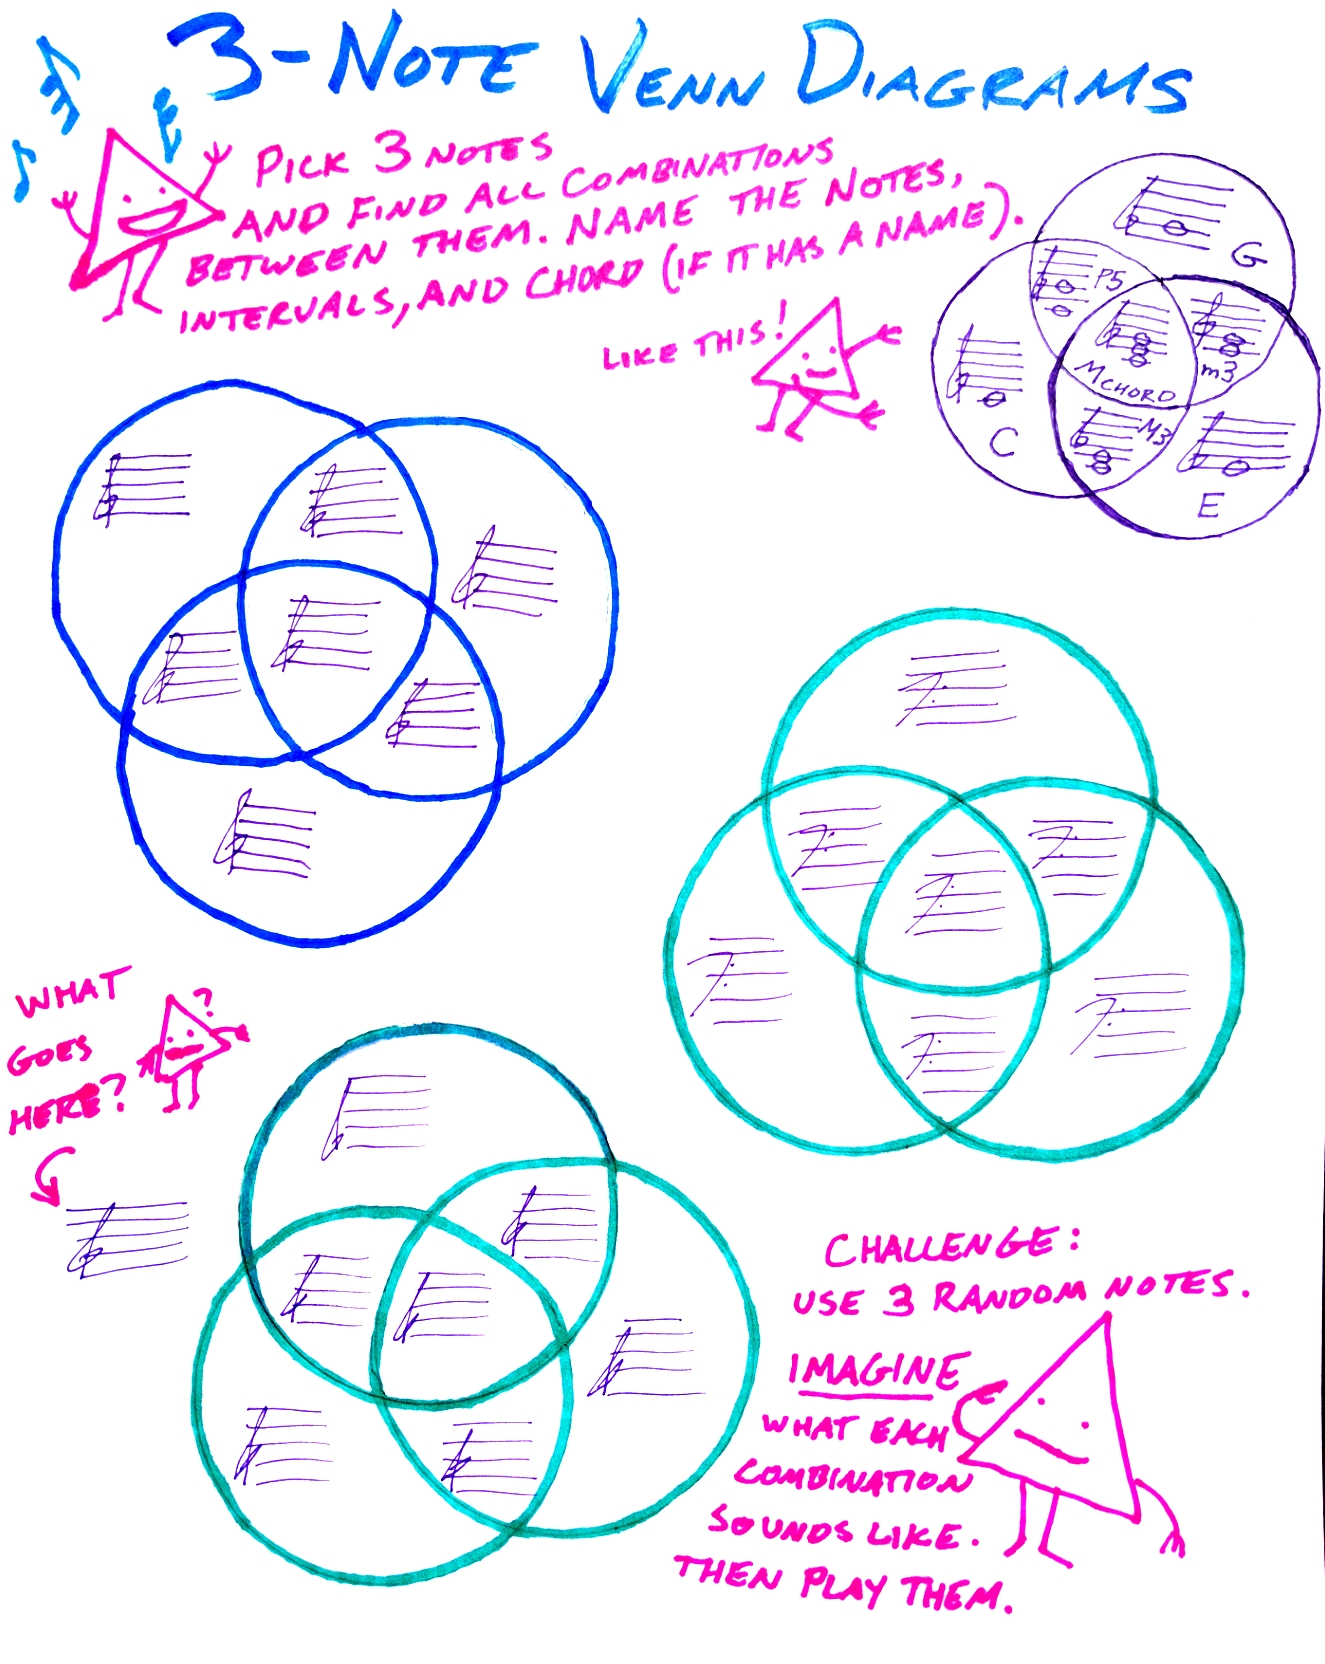 3-NOTE VENN DIAGRAMS
PICK 3 NOTES
AND FIND ALL COMBINATIONS
BETWEEN THEM. NAME THE NOTES,
INTERVALS, AND CHORD (IF IT HAS A NAME).
LIKE THIS!
G
P5
M CHORD
m3
M3
C
E
WHAT
GOES
HERE?
?
CHALLENGE:
USE 3 RANDOM NOTES.
IMAGINE
WHAT EACH
COMBINATION
SOUNDS LIKE.
THEN PLAY THEM.